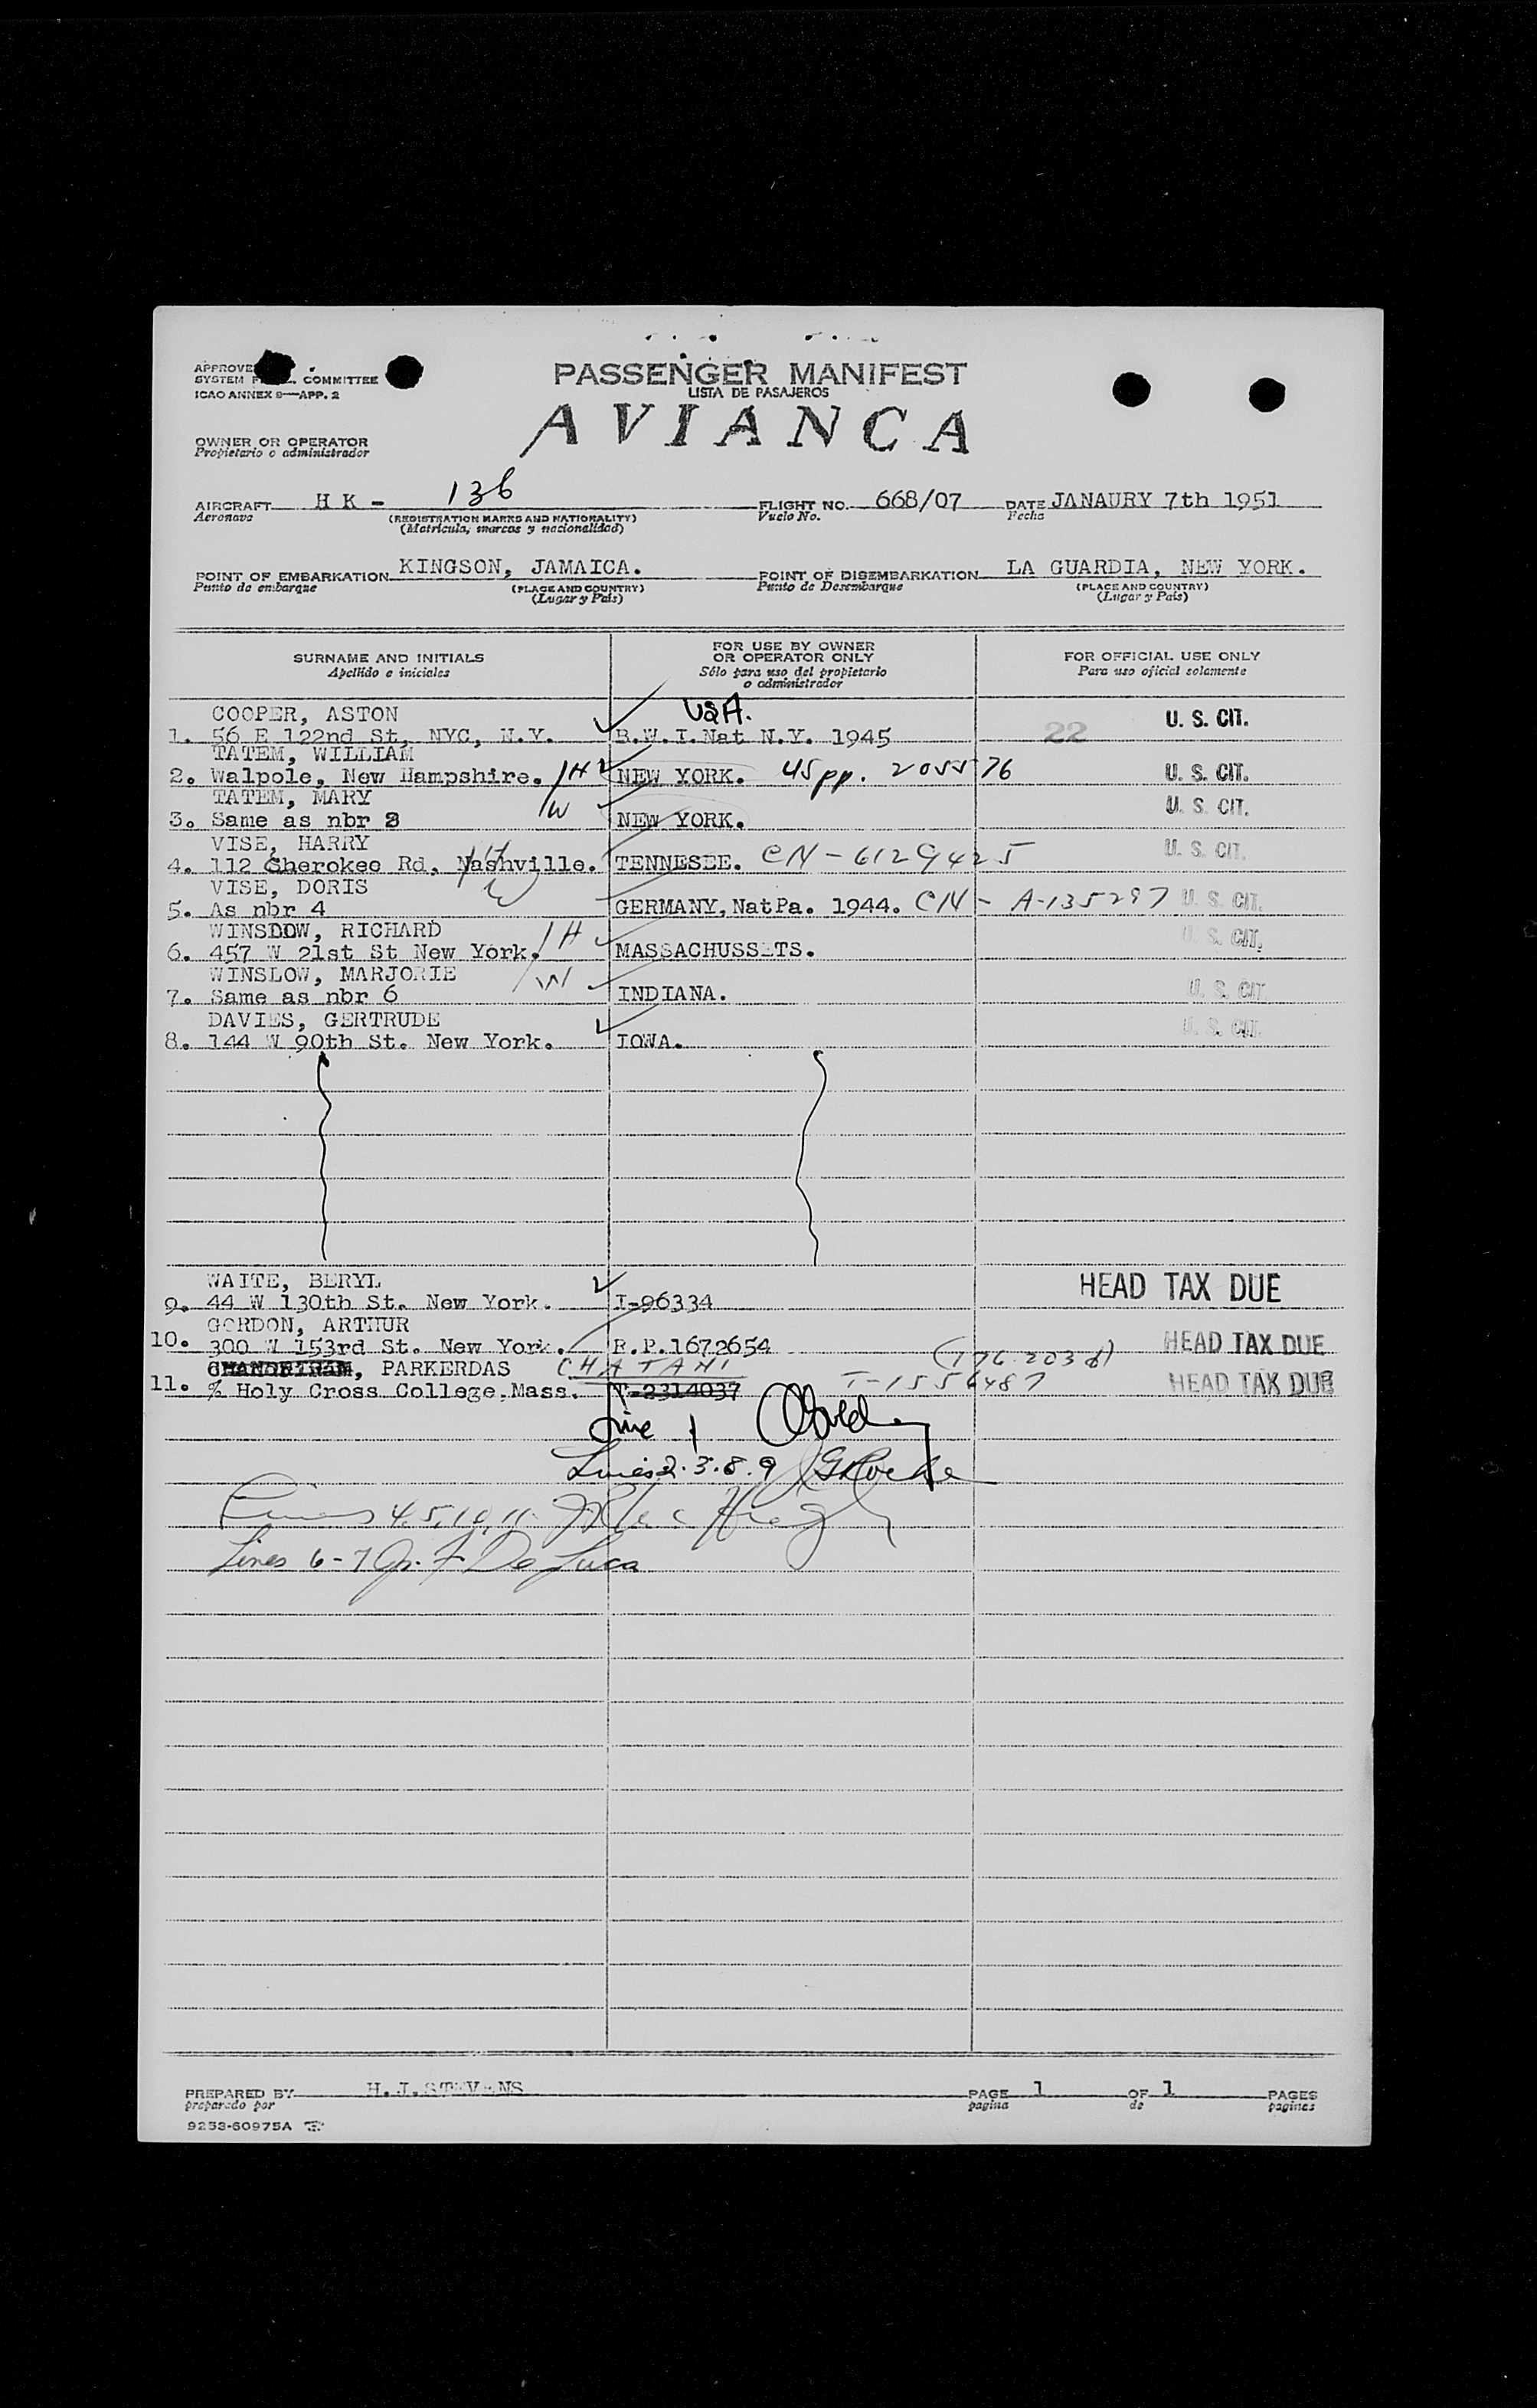 PASSENGER MANIFEST
LISTA DE PASAJEROS
AVIANCA
SYSTEM COMMITTEE
ICAO ANNEX 9—APP. 2
OWNER OR OPERATOR
Propietario o administrador
AIRCRAFT H K - 136 FLIGHT NO. 668/07 DATE JANAURY 7th 1951
Aeronave (REGISTRATION MARKS AND NATIONALITY) Vuelo No. Fecha
(Matrícula, marcas y nacionalidad)
POINT OF EMBARKATION KINGSON, JAMAICA. POINT OF DISEMBARKATION LA GUARDIA, NEW YORK.
Punto de embarque (PLACE AND COUNTRY) Punto de Desembarque (PLACE AND COUNTRY)
(Lugar y País) (Lugar y País)
SURNAME AND INITIALS FOR USE BY OWNER OR OPERATOR ONLY FOR OFFICIAL USE ONLY
Apellido e iniciales Sólo para uso del propietario o administrador Para uso oficial solamente
COOPER, ASTON USA. U. S. CIT.
1. 56 E 122nd St, NYC, N.Y. B.W.I. Nat N.Y. 1945 22
TATEM, WILLIAM
2. Walpole, New Hampshire. H NEW YORK. U. S. CIT.
TATEM, MARY
3. Same as nbr 2 W NEW YORK. U. S. CIT.
VISE, HARRY
4. 112 Cherokee Rd, Nashville. H TENNESEE. CN-6129425 U. S. CIT.
VISE, DORIS W
5. As nbr 4 GERMANY, Nat Pa. 1944. CN - A-135297 U. S. CIT.
WINSDOW, RICHARD
6. 457 W 21st St New York. H MASSACHUSSETS. U. S. CIT.
WINSLOW, MARJORIE
7. Same as nbr 6 W INDIANA. U. S. CIT.
DAVIES, GERTRUDE
8. 144 W 90th St. New York. IOWA. U. S. CIT.
WAITE, BERYL
9. 44 W 130th St. New York. I-96334 HEAD TAX DUE
GORDON, ARTHUR
10. 300 W 153rd St. New York. R.P. 1672654 HEAD TAX DUE
, PARKERDAS CHATANI
11. % Holy Cross College, Mass. T-2314037 T-1556487 HEAD TAX DUE
Line 1
Lines 2.3.8.9
Lines 4,5,10,11
Lines 6-7 De Luca
PREPARED BY H.J.STEVENS PAGE 1 OF 1 PAGES
preparado por pagina de paginas
9253-60975A